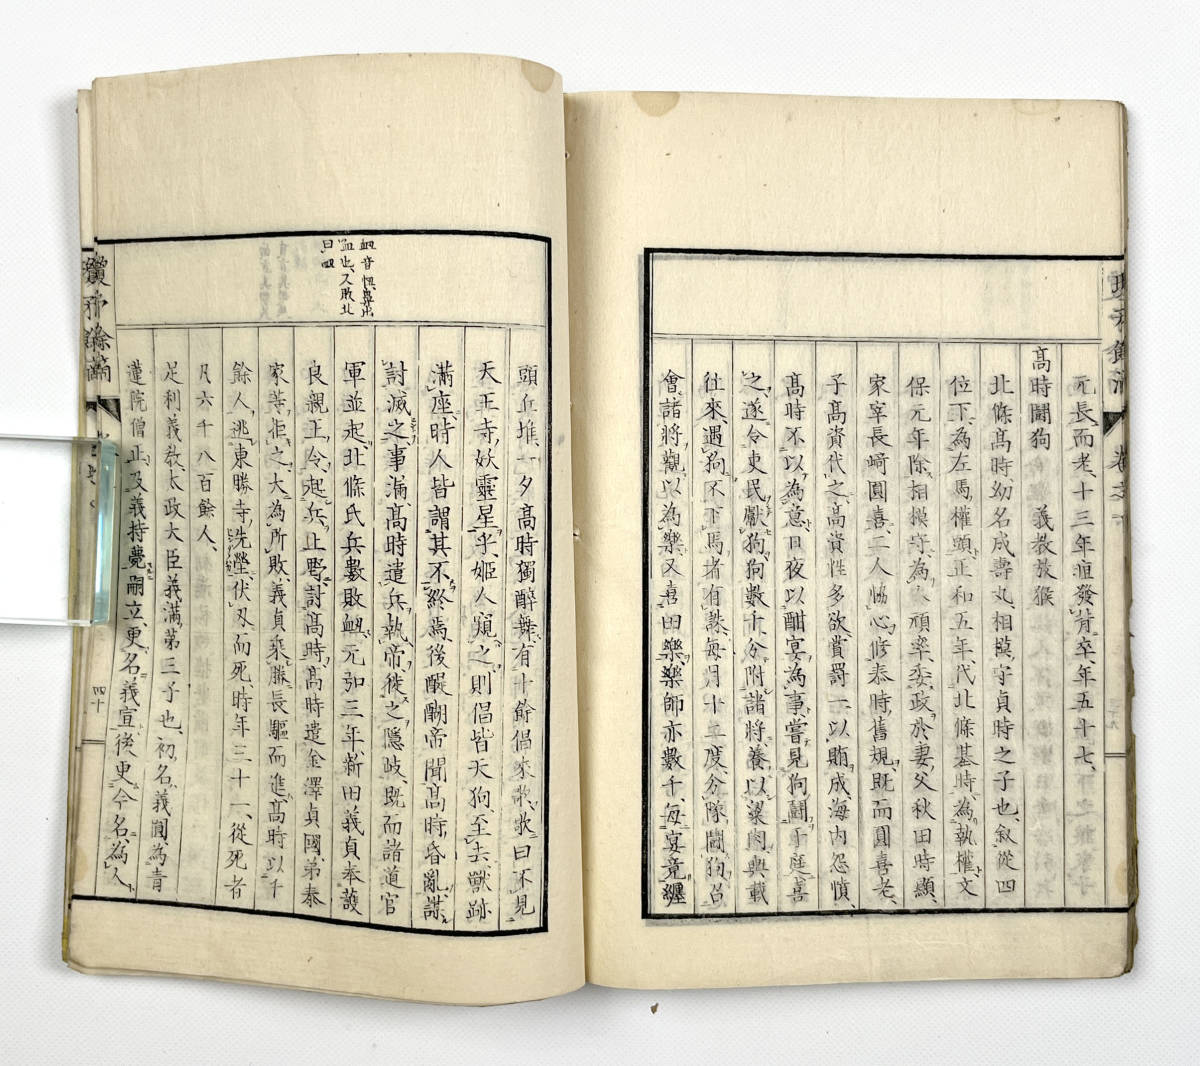 元長而老、十三年疽發背卒、年五十七、
高時鬪狗　義教放猴
北條高時、幼名成壽丸、相模守貞時之子也、叙從四
位下、為左馬權頭、正和五年、代北條基時、為執權、文
保元年、除相模守、為人頑率、委政於妻父秋田時顯、
家宰長崎圓喜、二人恊心、修泰時舊規、既而圓喜老、
子高資代之、高資性多欲、賞罰一以賄成、海内怨憤、
高時不以為意、日夜以酣宴為事、嘗見狗鬪于庭、喜
之、遂令吏民獻狗、狗數千、分附諸將養、以粱肉輿載
往來、遇狗不下馬者有誅、每月十二度、分隊鬪狗、召
會諸將觀、以為樂、又喜田樂、樂師亦數千、每宴竟纏
頭丘堆、一夕高時獨醉舞、有十餘倡來歌、歌曰不見
天王寺、妖靈星乎、姬人窺之、則倡皆天狗、至去、獸跡
滿座、時人皆謂其不終焉、後醍醐帝聞高時昏亂、謀
討滅之、事滿、高時遣兵執帝、徙之隱岐、既而諸道官
軍並起、北條氏兵數敗衄、元弘三年、新田義貞奉護
良親王令、起兵上野、討高時、高時遣金澤貞國、弟泰
家等拒之、大為所敗、義貞乘勝長驅而進、高時以千
餘人、逃東勝寺先塋、伏刄而死、時年三十一、從死者
凡六千八百餘人、
足利義教、太政大臣義滿第三子也、初名義圓、為青
蓮院僧正、及義持薨嗣立、更名義宣、後更今名、為人
衄音忸鼻出
血也、又敗北
曰衄
四十